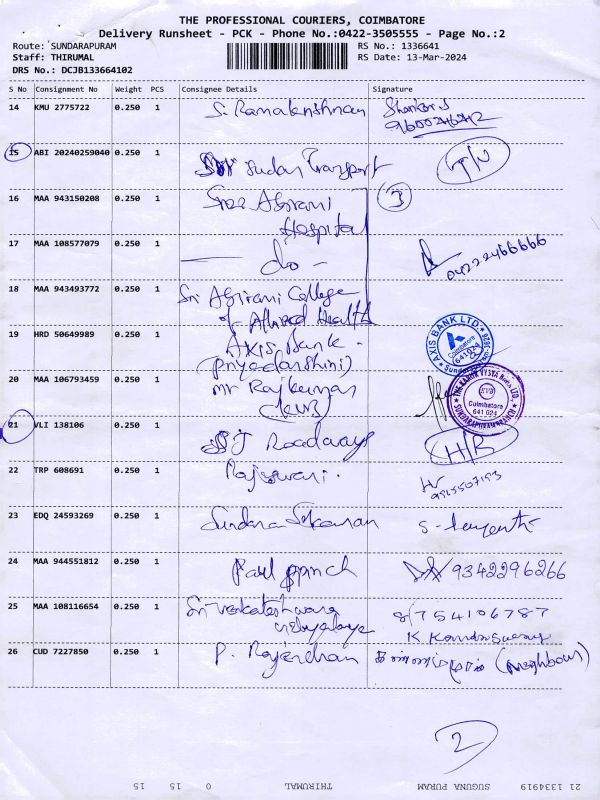 THE PROFESSIONAL COURIERS, COIMBATORE
Delivery Runsheet - PCK - Phone No.:0422-3505555 - Page No.:2
Route: SUNDARAPURAM
RS No.: 1336641
Staff: THIRUMAL
RS Date: 13-Mar-2024
DRS No.: DCJB133664102
S No Consignment No Weight PCS Consignee Details Signature
14 KMU 2775722 0.250 1 S. Ramakrishnan Shankar S
9600246242
15 ABI 20240259040 0.250 1 Sudan Transport
16 MAA 943150208 0.250 1 Sree Abirami 3
Hospital
17 MAA 108577079 0.250 1 do 04222466666
18 MAA 943493772 0.250 1 Sri Abirami College
of Allied Health
19 HRD 50649989 0.250 1 AXIS Bank
(Priyadarshini)
AXIS BANK LTD.
Coimbatore
641 024
20 MAA 106793459 0.250 1 Mr Rajkumar
(KVB)
THE KARUR VYSYA BANK LTD.
KVB
Coimbatore
641 024
SUNDARAPURAM BRANCH
21 VLI 138106 0.250 1 SJ Roadways
22 TRP 608691 0.250 1 Rajeswari.
23 EDQ 24593269 0.250 1 Sundara S
24 MAA 944551812 0.250 1 Paul 9342296266
25 MAA 108116654 0.250 1 Sri Venkateshwara
Vidyalaya
8754106787
K Kandaswamy
26 CUD 7227850 0.250 1 P. Rajendran (neighbour)
2
21 1334919 SUGUNA PURAM THIRUMAL 0 15 15